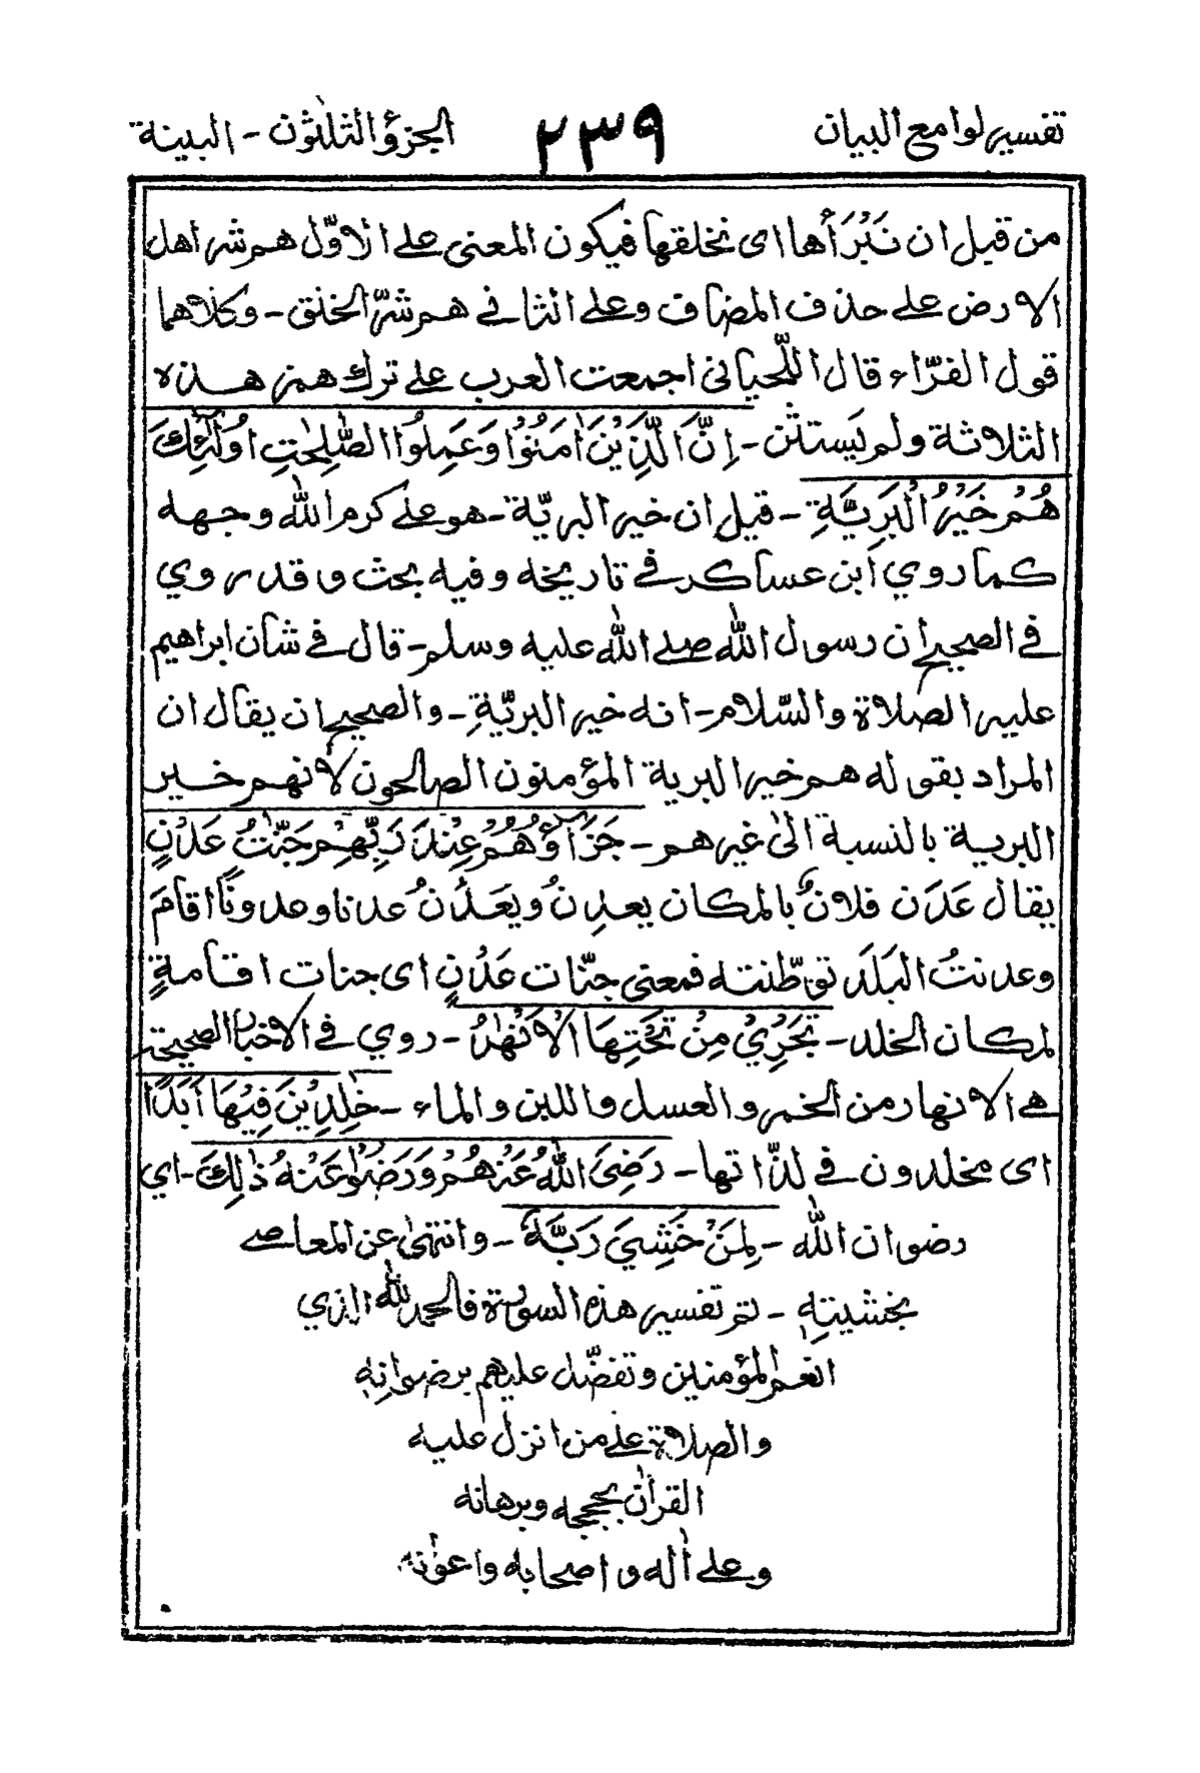 تفسير لوامع البيان ٢٣٩ الجزؤ الثلٰثون - البينة
من قبل ان نَبْرَأها اى نخلقها فيكون المعنى على الاوّل هم شر اهل
الارض على حذف المضاف وعلى الثانى هم شرّ الخلق - وكلاهما
قول الفرّاء قال اللّحيانى اجمعت العرب على ترك همز هذه
الثلاثة ولم يَستثن - اِنَّ الَّذِيْنَ اٰمَنُوْا وَعَمِلُوا الصّٰلِحٰتِ اُولٰٓئِكَ
هُمْ خَيْرُ الْبَرِيَّةِ - قيل ان خير البريّة - هو على كرم الله وجهه
كما روي ابن عساكر فى تاريخه وفيه بحث وقد روي
فى الصحيح ان رسول الله صلى الله عليه وسلم - قال فى شان ابراهيم
عليه الصلاة والسّلام - انه خير البريّةِ - والصحيح ان يقال ان
المراد بقوله هم خير البرية المؤمنون الصالحون لانهم خير
البرية بالنسبة الىٰ غيرهم - جَزَآؤُهُمْ عِنْدَ رَبِّهِمْ جَنّٰتُ عَدْنٍ
يقال عَدَن فلانٌ بالمكان يعدِنُ ويَعَدُنُ عدنا وعدونًا اقامَ
وعدنتُ البَلَدَ توطّنته فمعنى جنّات عَدْنٍ اى جنات اقامةٍ
لمكان الخلد - تَجْرِيْ مِنْ تَحْتِهَا الْاَنْهٰرُ - روي فى الاخبار الصحيحة
هى الانهار من الخمر والعسل واللبن والماء - خٰلِدِيْنَ فِيْهَا اَبَدًا
اى مخلدون فى لذّاتها - رَضِىَ اللّٰهُ عَنْهُمْ وَرَضُوْا عَنْهُ ذٰلِكَ - اي
رضوان الله - لِمَنْ خَشِيَ رَبَّهٗ - وانتهىٰ عن المعاصى
بخشيتهٖ - تم تفسير هذه السورة فالحمد لله الذي
انعم المؤمنين وتفضّل عليهم برضوانهٖ
والصلاة على من انزل عليه
القراٰن بحججه وبرهانه
وعلى اٰله واصحابه واعوٰنه